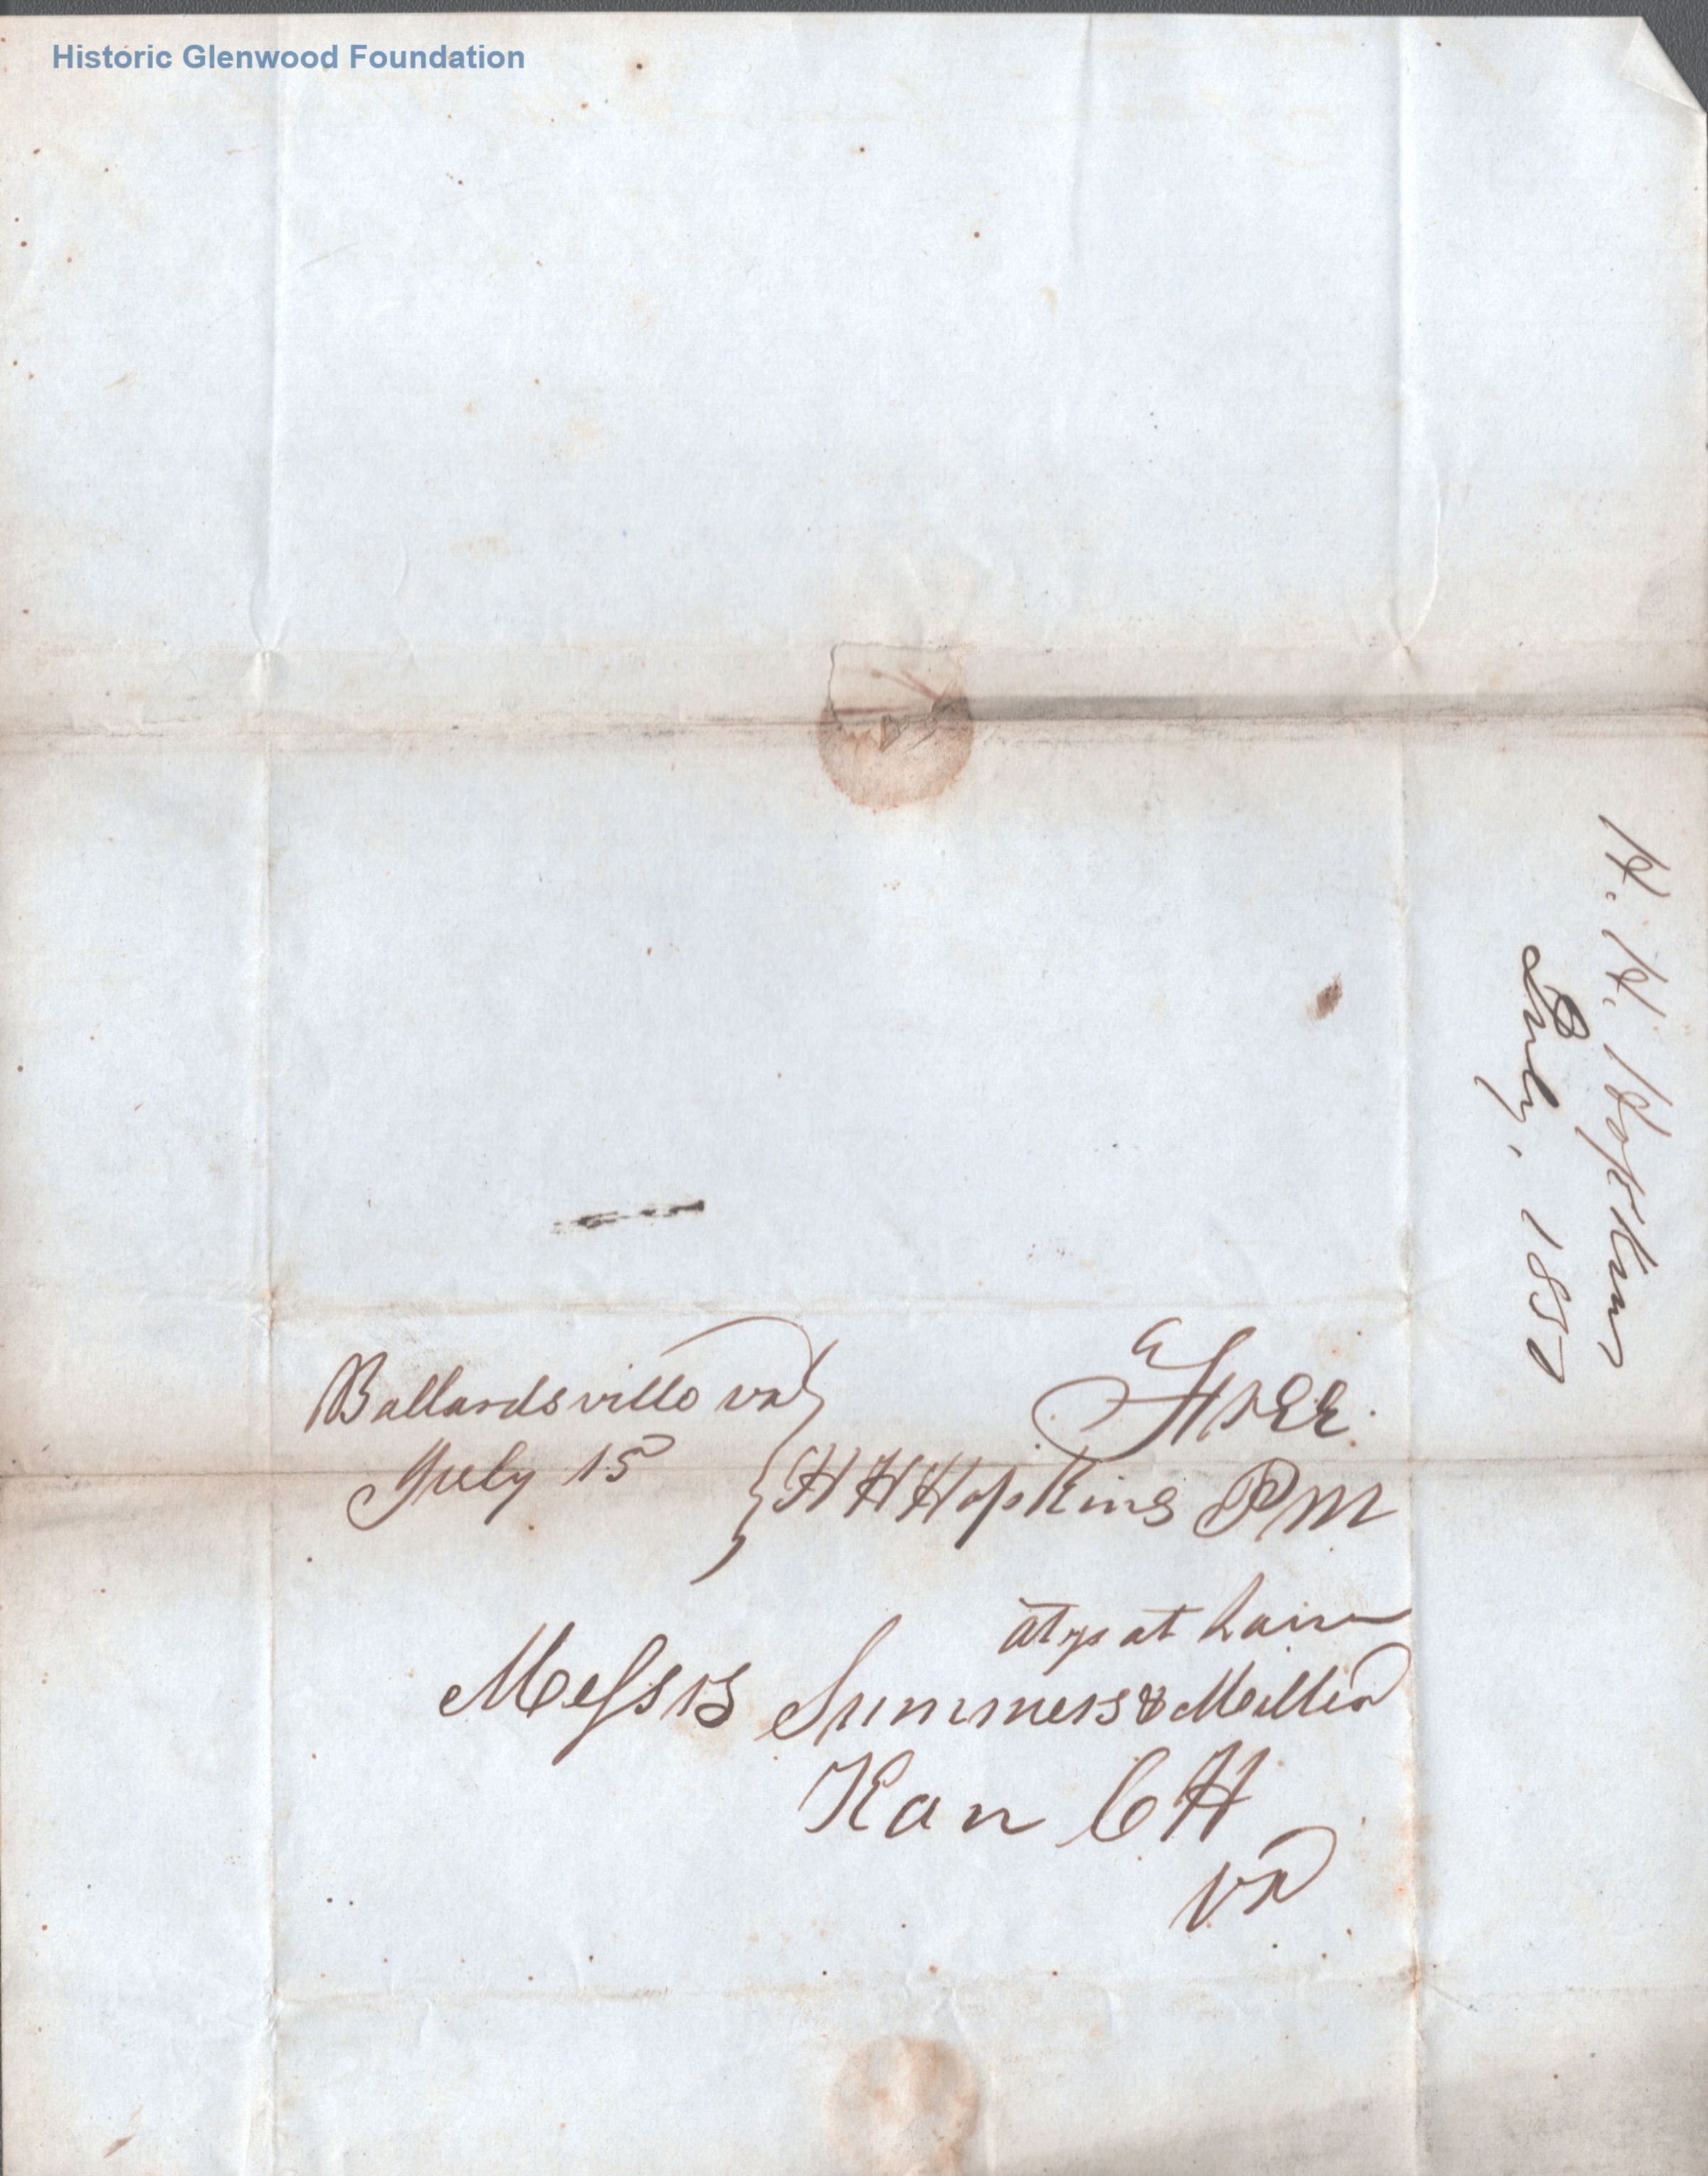 Historic Glenwood Foundation
H. H. Hopkins
July, 185
Ballardsville va
July 15
Free
H H Hopkins PM
atys at Law
Messrs Summers & Miller
Kan C H
va